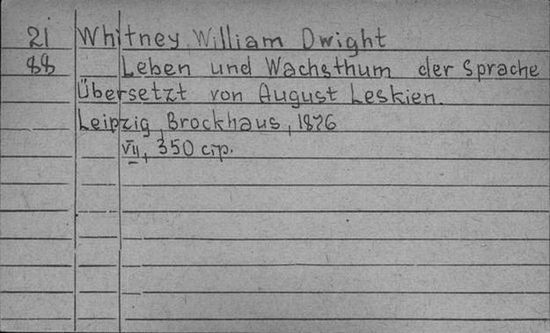 21 Whitney, William Dwight
88 Leben und Wachsthum der Sprache
Übersetzt von August Leskien.
Leipzig, Brockhaus, 1876
VII, 350 стр.